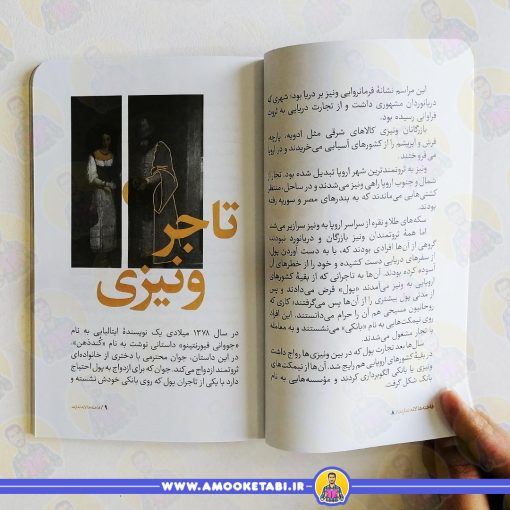 این مراسم نشانهٔ فرمانروایی ونیز بر دریا بود؛ شهری که
دریانوردان مشهوری داشت و از تجارت دریایی به ثروت
فراوانی رسیده بود.
بازرگانان ونیزی کالاهای شرقی مثل ادویه، پارچه،
فرش و ابریشم را از کشورهای آسیایی می‌خریدند و در اروپا
می‌فروختند.
ونیز به ثروتمندترین شهر اروپا تبدیل شده بود. تجار از
شمال و جنوب اروپا راهی ونیز می‌شدند و در ساحل، منتظر
کشتی‌هایی می‌ماندند که به بندرهای مصر و سوریه رفته
بودند.
سکه‌های طلا و نقره از سراسر اروپا به ونیز سرازیر می‌شد.
اما همهٔ ثروتمندان ونیز بازرگان و دریانورد نبودند.
گروهی از آن‌ها افرادی بودند که، با به دست آوردن پول،
از سفرهای دریایی دست کشیده و خود را از خطرهای آن
آسوده کرده بودند. آن‌ها به تاجرانی که از بقیهٔ کشورهای
اروپایی به ونیز می‌آمدند «پول» قرض می‌دادند و پس
از مدتی پول بیشتری را از آن‌ها پس می‌گرفتند؛ کاری که
روحانیون مسیحی هم آن را حرام می‌دانستند. این افراد
روی نیمکت‌هایی به نام «بانکی» می‌نشستند و به معامله
با تجار مشغول می‌شدند.
سال‌ها بعد تجارت پول که در بین ونیزی‌ها رواج داشت
در بقیهٔ کشورهای اروپایی هم رایج شد. آن‌ها از نیمکت‌های
ونیزی یا بانکی الگوبرداری کردند و مؤسسه‌هایی به نام
بانک شکل گرفت.
۸
تاجر
ونیزی
در سال ۱۳۷۸ میلادی یک نویسندهٔ ایتالیایی به نام
«جووانی فیورنتینو» داستانی نوشت به نام «کُندُذهن».
در این داستان، جوان محترمی با دختری از خانواده‌ای
ثروتمند ازدواج می‌کند. جوان که برای ازدواج به پول احتیاج
دارد با یکی از تاجران پول که روی بانکی خودش نشسته و
۹
WWW.AMOOKETABI.IR